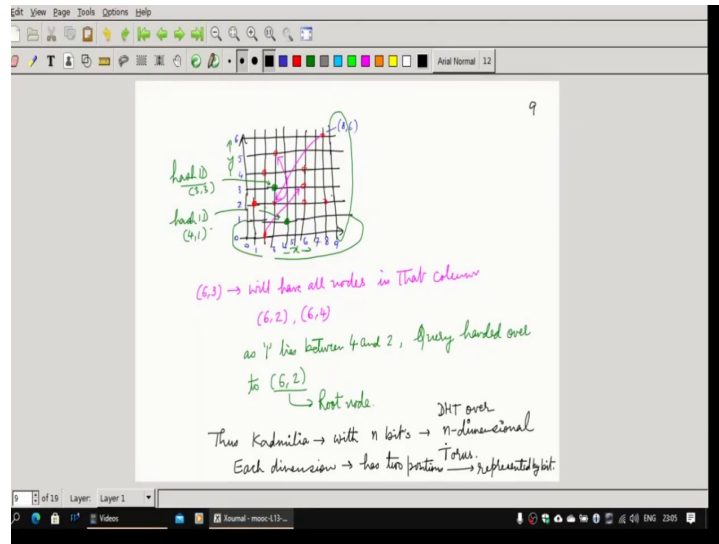 Edit View Page Tools Options Help
Arial Normal 12
9
6
5
4
3
2
1
0
y
(8,6)
hash ID
(3,3)
hash ID
(4,1)
0 1 2 3 4 5 6 7 8 9
x
(6,3) → will have all nodes in that column
(6,2), (6,4)
as '1' lies between 4 and 2, Query handed over
to (6,2)
Root node.
DHT over
Thus Kadmilia → with n bits → n-dimensional
Torus.
Each dimension → has two positions → represented by bit.
9 of 19 Layer: Layer 1
Videos
Xournal - mooc-L13-...
ENG 23:05